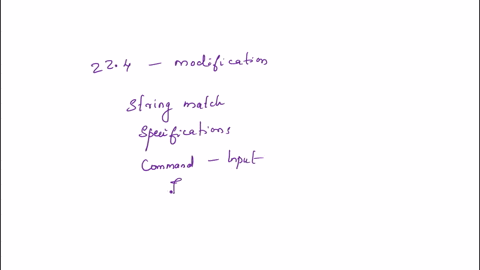 22.4 — modification
String match
Specifications
Command — Input
I